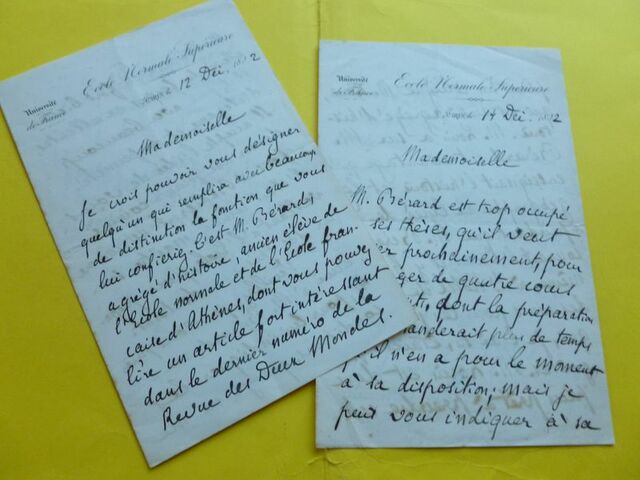 Ecole Normale Supérieure
Université
de France
12 Déc. 1892
Mademoiselle
Je crois pouvoir vous désigner
quelqu'un qui remplira avec beaucoup
de distinction la fonction que vous
lui confieriez. C'est M. Bérard,
agrégé d'histoire, ancien élève de
l'Ecole normale et de l'Ecole fran-
caise d'Athènes, dont vous pouvez
lire un article fort intéressant
dans le dernier numéro de la
Revue des Deux Mondes.
Ecole Normale Supérieure
Université
de France
14 Déc. 1892
Mademoiselle
M. Bérard est trop occupé
ses thèses, qu'il veut
er prochainement, pour
ger de quatre cours
dont la préparation
anderait plus de temps
il n'en a pour le moment
à sa disposition, mais je
peux vous indiquer à sa